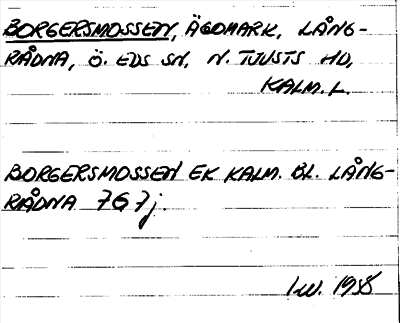 BORGERSMOSSEN, ÄGOMARK, LÅNG-
RÅDNA, Ö. EDS SN, N. TJUSTS HD,
KALM. L.
BORGERSMOSSEN EK KALM. BL. LÅNG-
RÅDNA 767j.
I.W. 1958